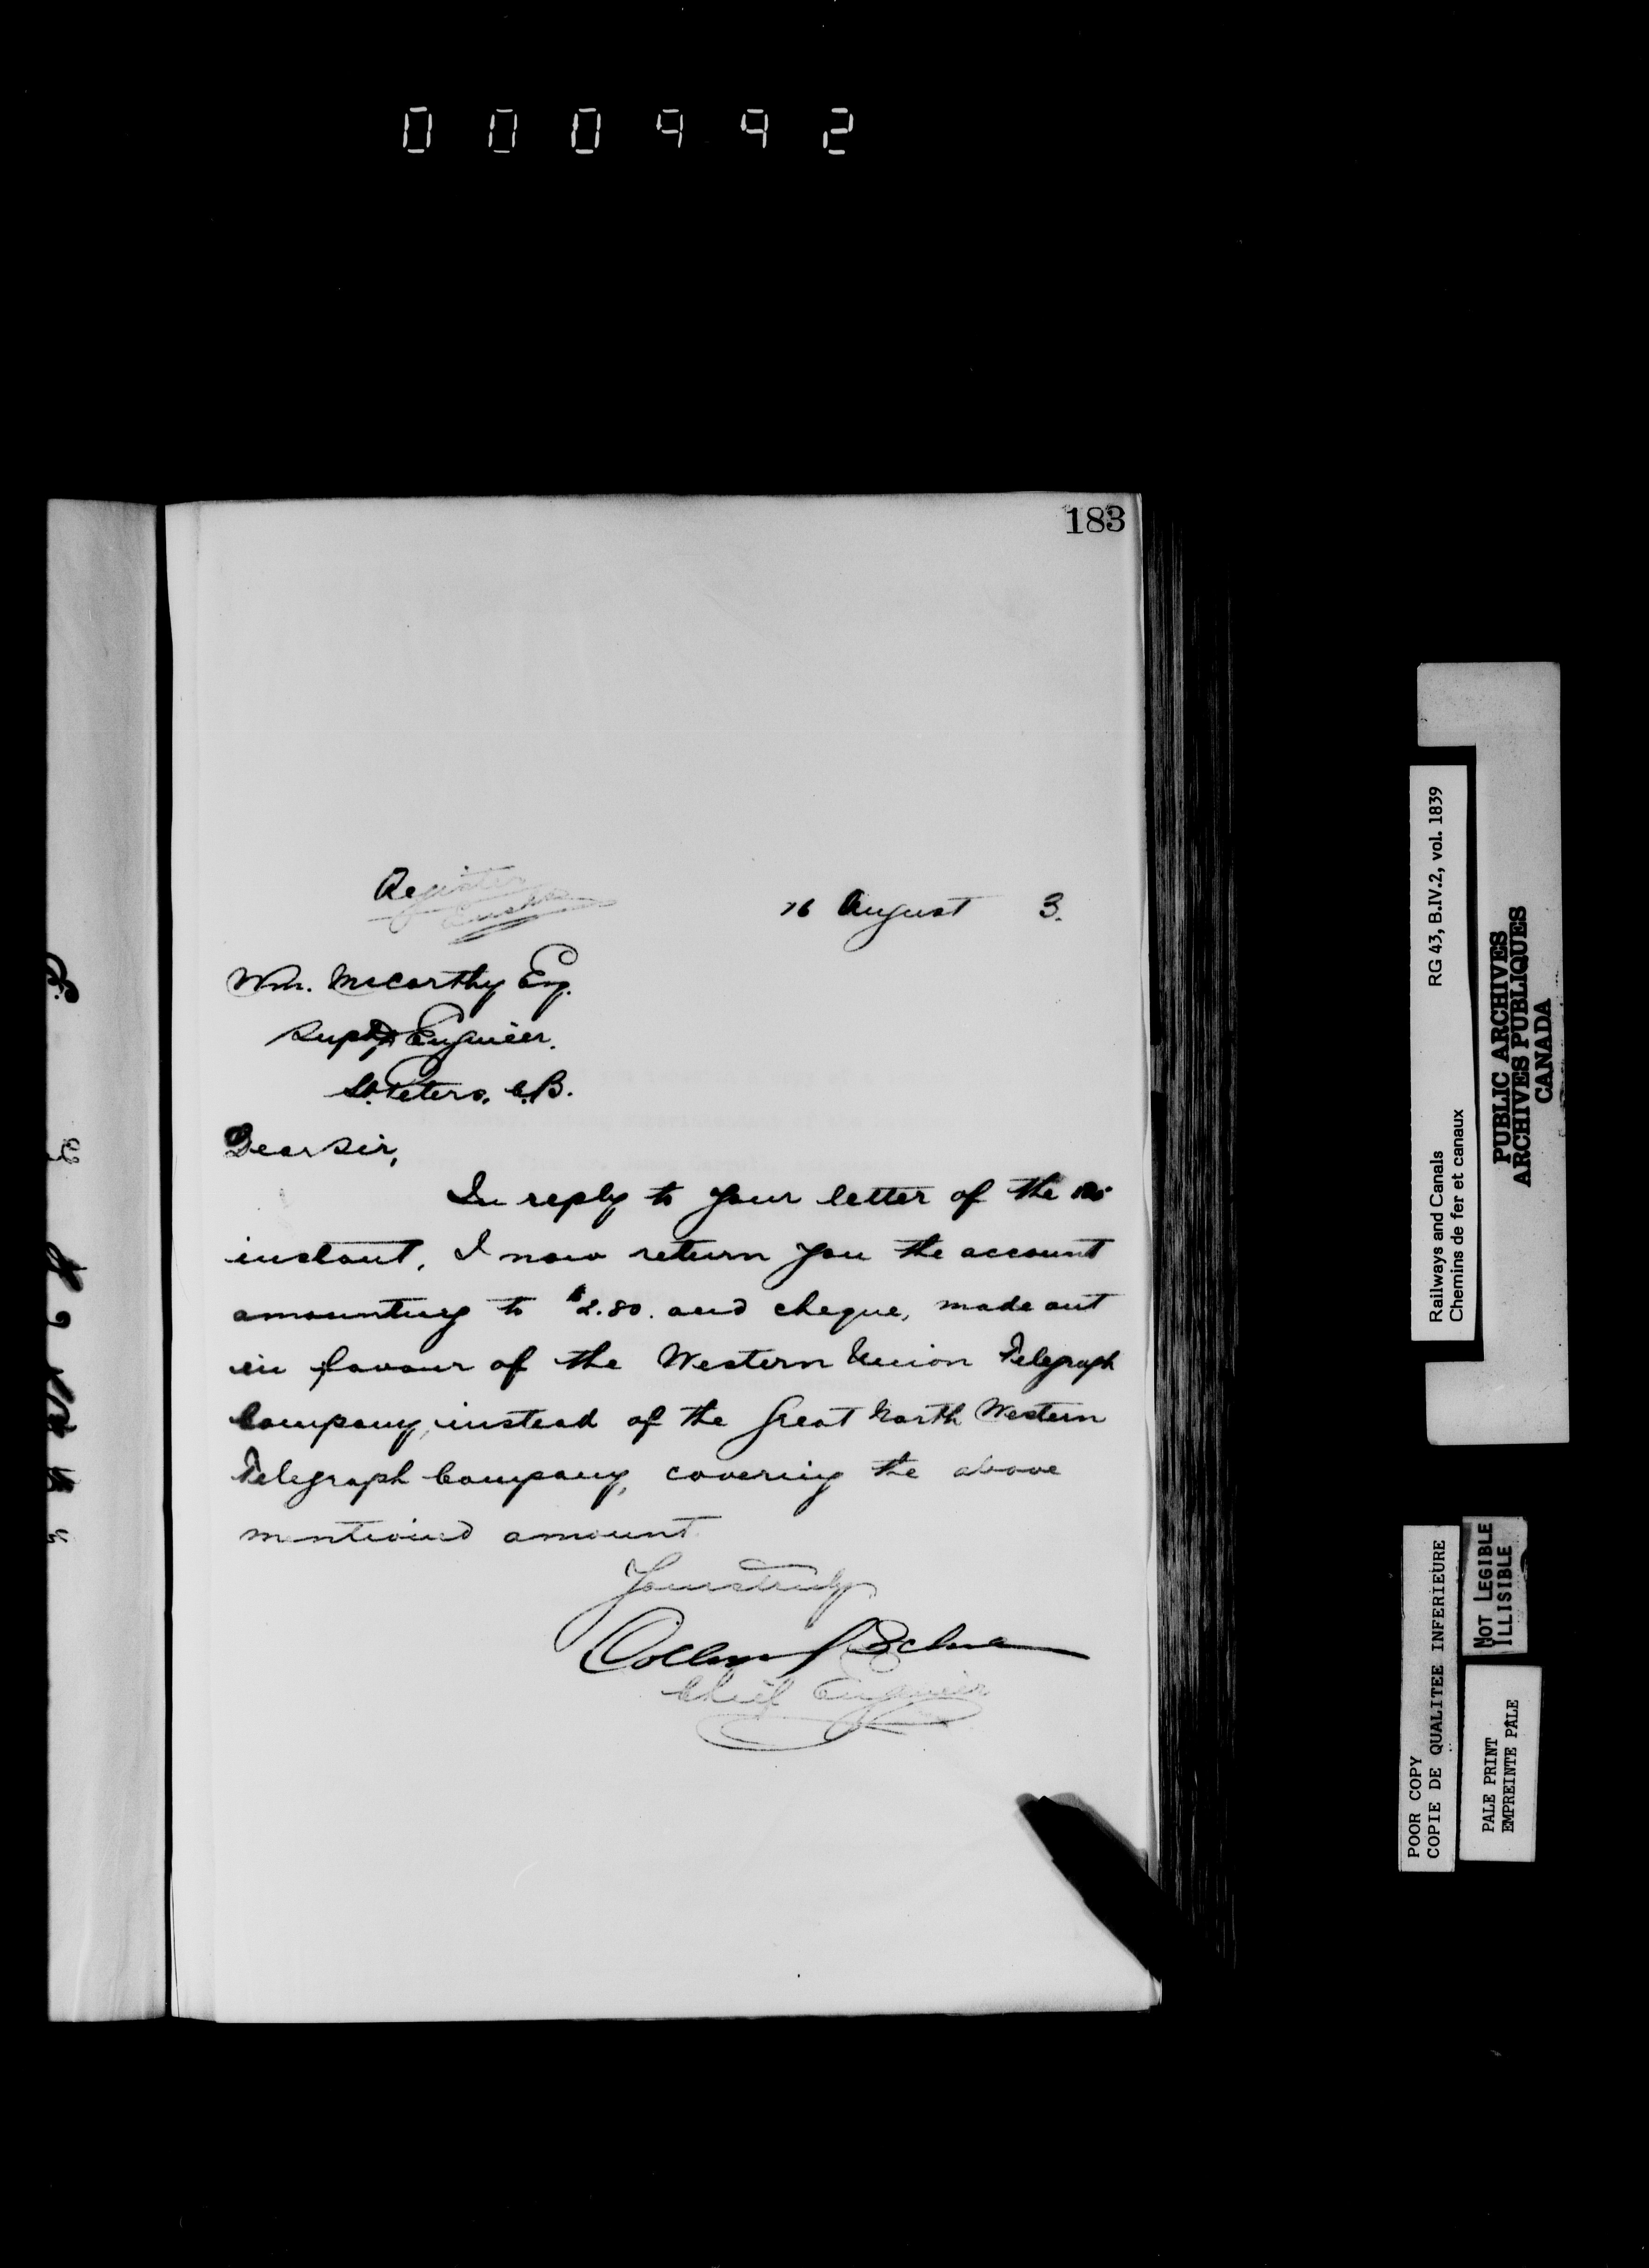 000992
183
Register
16 August 3.
Wm. McCarthy Esq.
Supt Engineer.
St. Peters, C.B.
Dear Sir,
In reply to your letter of the
instant, I now return you the account
amounting to $2.80. and cheque, made out
in favour of the Western Union Telegraph
Company, instead of the Great North Western
Telegraph Company, covering the above
mentioned amount
Yours truly
Collingwood Schreiber
Chief Engineer
Railways and Canals RG 43, B.IV.2, vol. 1839
Chemins de fer et canaux
PUBLIC ARCHIVES
ARCHIVES PUBLIQUES
CANADA
POOR COPY
COPIE DE QUALITEE INFERIEURE
NOT LEGIBLE
ILLISIBLE
PALE PRINT
EMPREINTE PALE